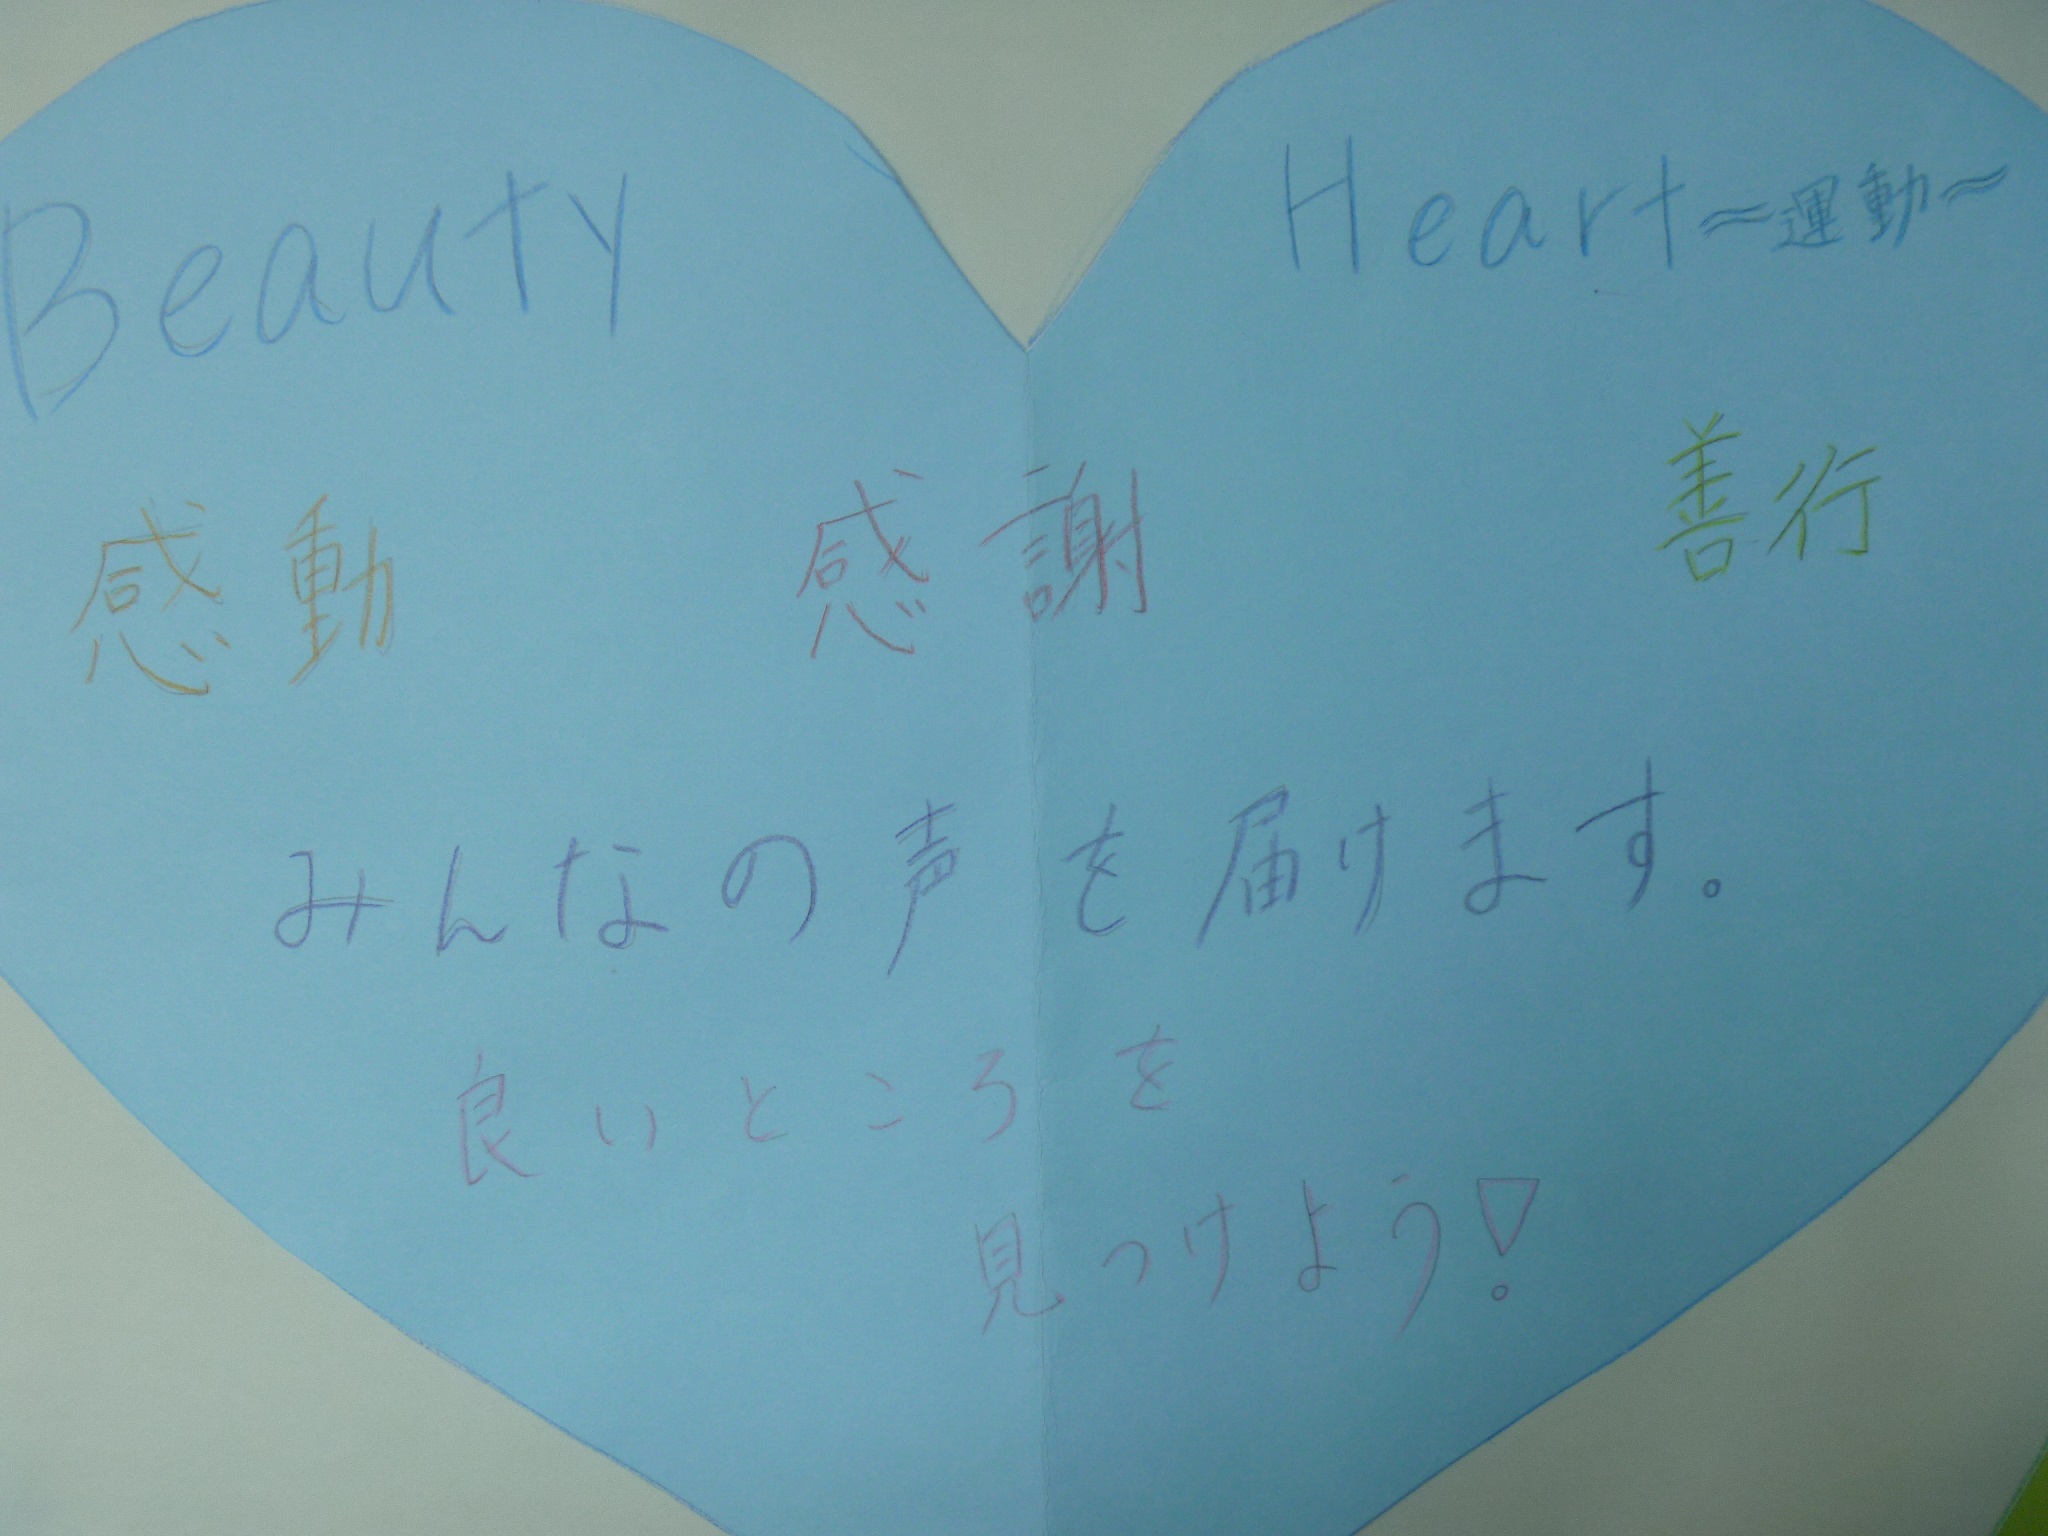 Beauty Heart～運動～
感動 感謝 善行
みんなの声を届けます。
良いところを
見つけよう!